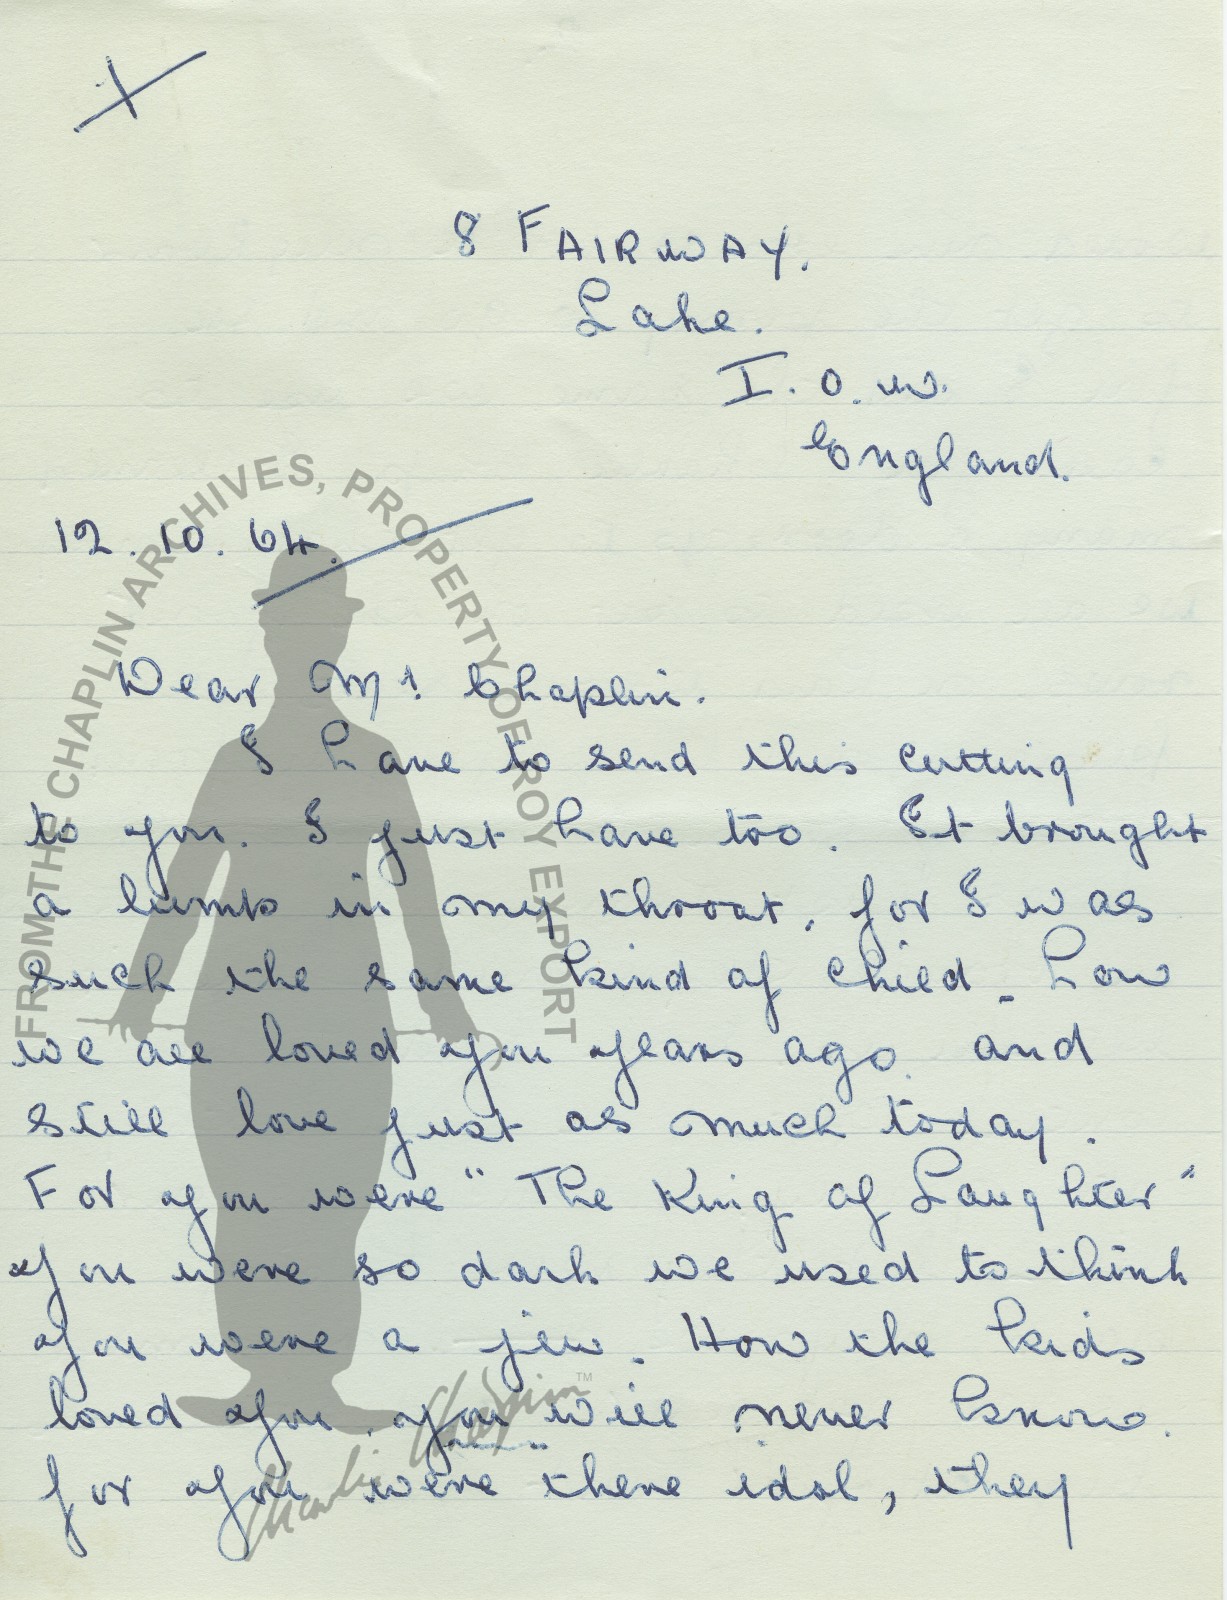 8 FAIRWAY.
Lake.
I.O.W.
England.
12.10.64.
Dear Mr. Chaplin.
I have to send this cutting
to you. I just have too. It brought
a lump in my throat, for I was
such the same kind of child. How
we all loved you years ago. and
still love just as much today.
For you were "The King of Laughter"
you were so dark we used to think
you were a jew. How the kids
loved you. you will never know.
for you were there idol, they
FROM THE CHAPLIN ARCHIVES, PROPERTY OF ROY EXPORT
Charlie Chaplin™